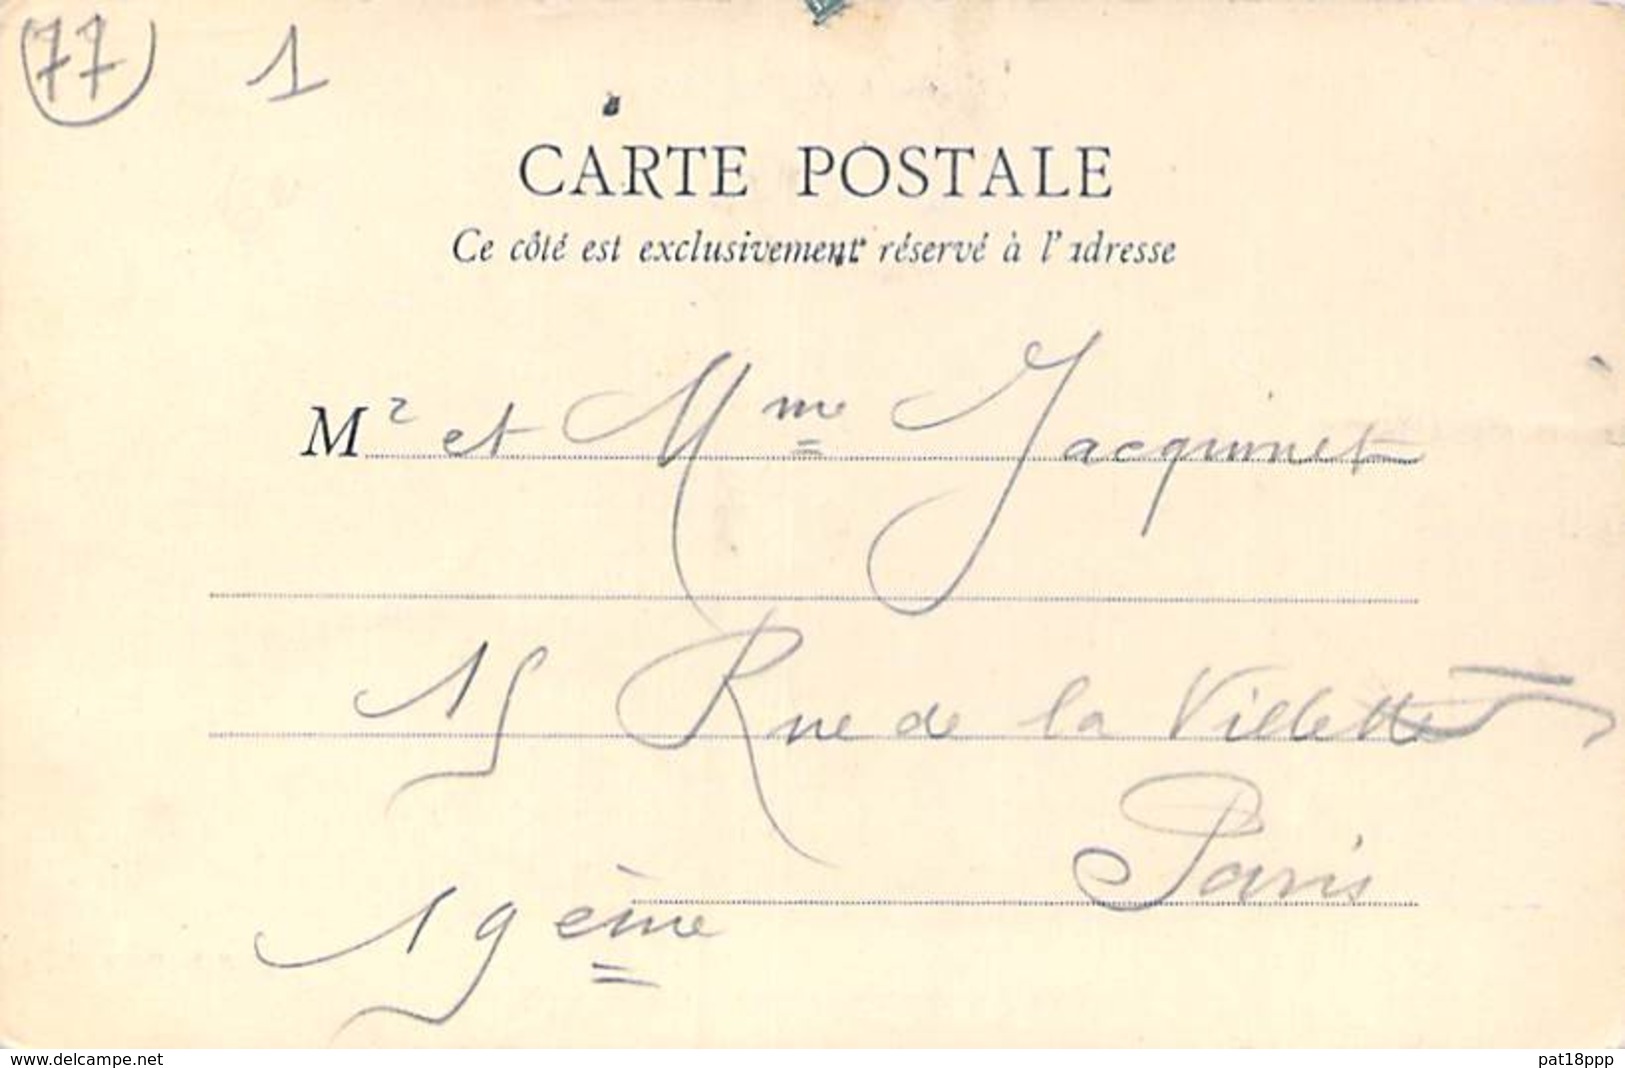 77 1
CARTE POSTALE
Ce côté est exclusivement réservé à l'adresse
Mr et Mme Jacquinet
15 Rue de la Villette
Paris
19ème
www.delcampe.net pat18ppp